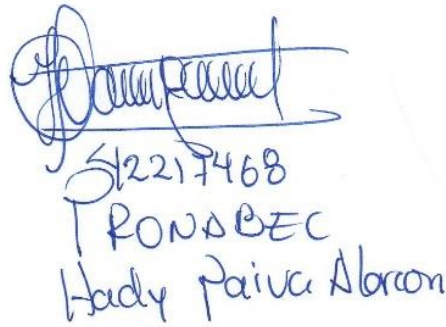 42217468
PRONABEC
Hady Paiva Alarcon